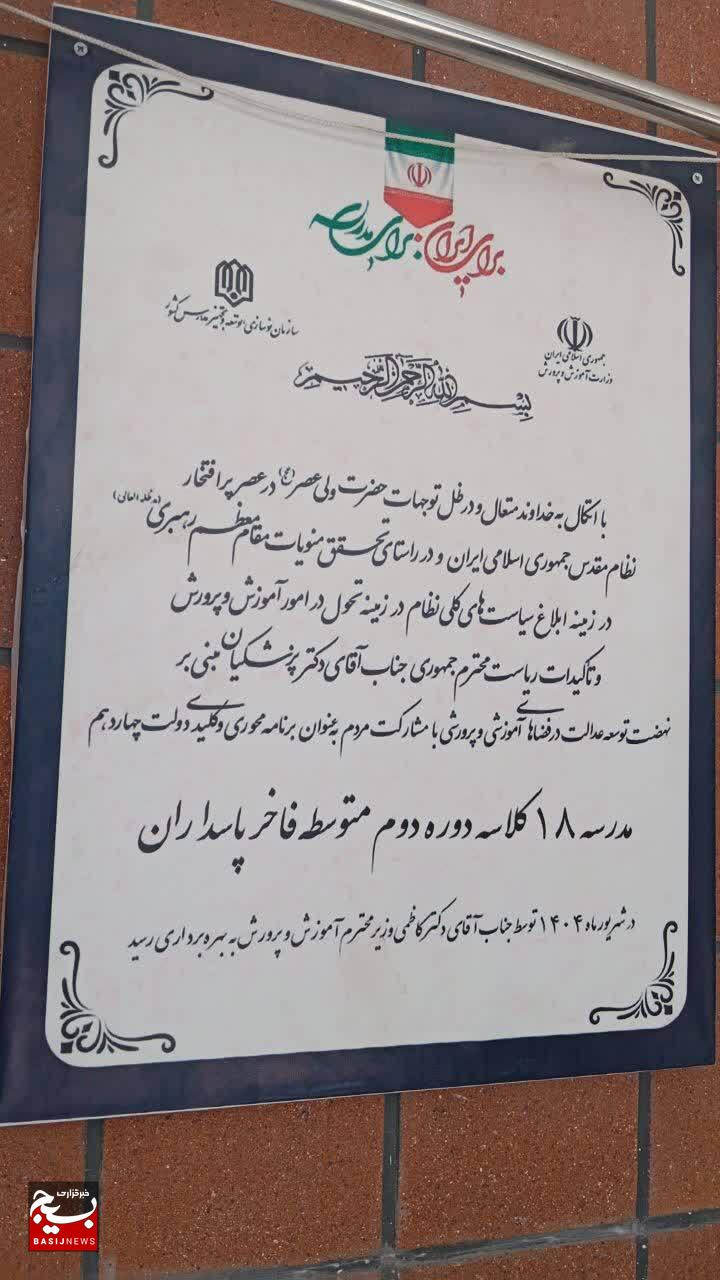 برای ایران؛ برای مدرسه
سازمان نوسازی، توسعه و تجهیز مدارس کشور
جمهوری اسلامی ایران
وزارت آموزش و پرورش
بسم الله الرحمن الرحیم
با اتکال به خداوند متعال و در ظل توجهات حضرت ولی عصر (عج) در عصر پر افتخار
نظام مقدس جمهوری اسلامی ایران و در راستای تحقق منویات مقام معظم رهبری (مدظله العالی)
در زمینه ابلاغ سیاست های کلی نظام در زمینه تحول در امور آموزش و پرورش
و تاکیدات ریاست محترم جمهوری جناب آقای دکتر پزشکیان مبنی بر
نهضت توسعه عدالت در فضاهای آموزشی و پرورشی با مشارکت مردم به عنوان برنامه محوری و کلیدی دولت چهاردهم
مدرسه ۱۸ کلاسه دوره دوم متوسطه فاخر پاسداران
در شهریور ماه ۱۴۰۴ توسط جناب آقای دکتر کاظمی وزیر محترم آموزش و پرورش به بهره برداری رسید
خبرگزاری
بسیج
BASIJNEWS